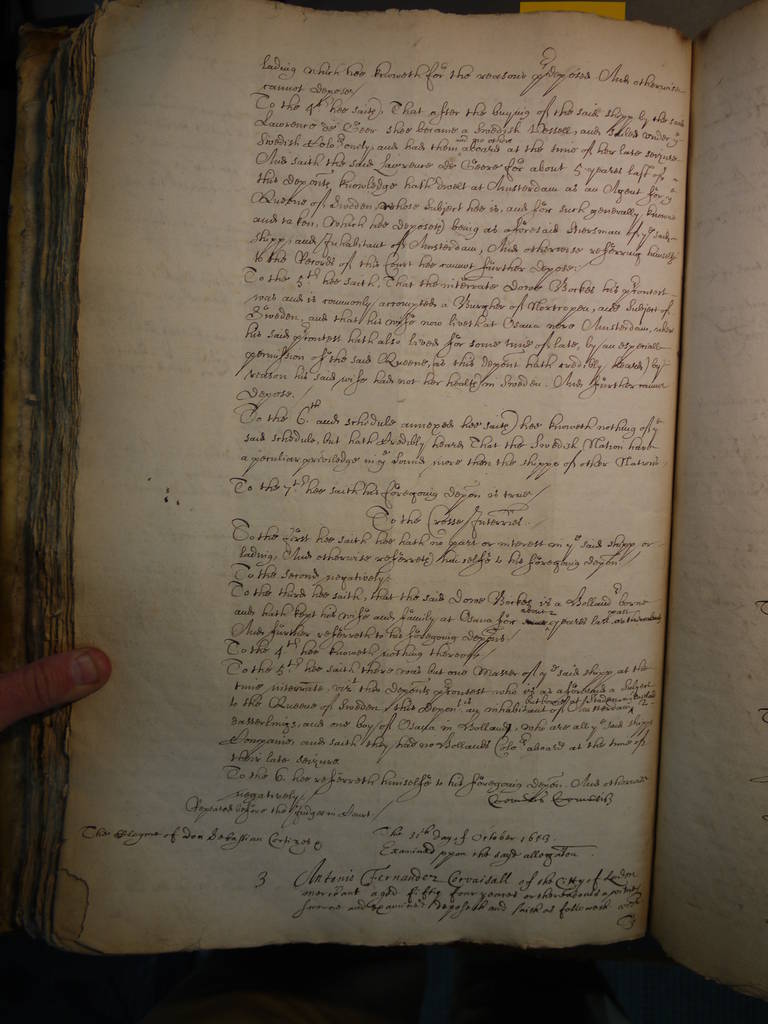 lading which hee knoweth for the reasons predeposed And otherwise
cannot depose./
To the 4th hee saith, That after the buying of the said shipp by the said
Lawrence de Geer shee became a Swedish Vessell, and sailed under
Swedish Colors onely, and had them and no other aboard at the time of her late seizure.
And saith the said Lawrence de Geere for about 5 yeares last of
this deponents knowledge hath dwelt at Amsterdam as an Agent for the
Queene of Sweden whose subject hee is, and for such generally knowne
and taken, Which hee deposeth being as aforesaid Steersman of ye said
shipp, and Inhabitant of Amsterdam, And otherwise referring himselfe
to the Records of this Court hee cannot further depose.
To the 5th hee saith, That the interrate Dowe Bockes his Contest
was and is commonly accompted a Burgher of Nortropen, and Subject of
Sweden, and that his wife now liveth at Osana nere Amsterdam, where
his said Contest hath also lived for some time of late, by an especiall
permission of the said Queene, as this deponent hath credibly heard) by
reason his said wife had not her health in Sweden. And further cannot
Depose./
To the 6th and schedule annexed hee saith) hee knoweth nothing of ye
said schedule, but hath Credibly heard That the Swedish Nation have
a peculiar priviledge in ye Sound more then the shipps of other Nations
To the 7th hee saith his foregoing depon is true/
To the Crosse Interries.
To the first hee saith hee hath no part or interest in ye said shipp or
lading, And otherwise referreth himselfe to his foregoing depon
To the second negatively.
To the third hee saith, that the said Dowe Bockes is a Hollander borne
and hath kept his wife and family at Osana for yeares last
And further referreth to his foregoing deposn.
To the 4th hee knoweth nothing thereof.
To the 5th hee saith there was but one Master of ye said shipp at the
time interrate, vizt this deponts Contest who is as aforesaid a Subject
to the Queene of Sweden this Deponent is an inhabitant of Amsterdam 12
Easterlings, and one boy of Osana in Holland, who are all ye said shipps
Companie, and saith they had no Hollands Colors aboard at the time of
their late seizure
To the 6. hee referreth himselfe to his foregoing depon. And otherwise
negatively
Repeated before the Judges in Court
The Clayme of Don Sebastian Cortizos
The 31th day of October 1653.
Examined upon the sayd allegation.
3 Antonio Fernandez Corvaisall of the Citty of London
merchant aged fiftie four yeares or thereabouts a wittnes
sworne and examined deposeth and saith as followeth